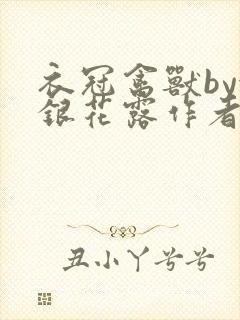 衣冠禽獸by
銀花露作者
丑小丫兮兮